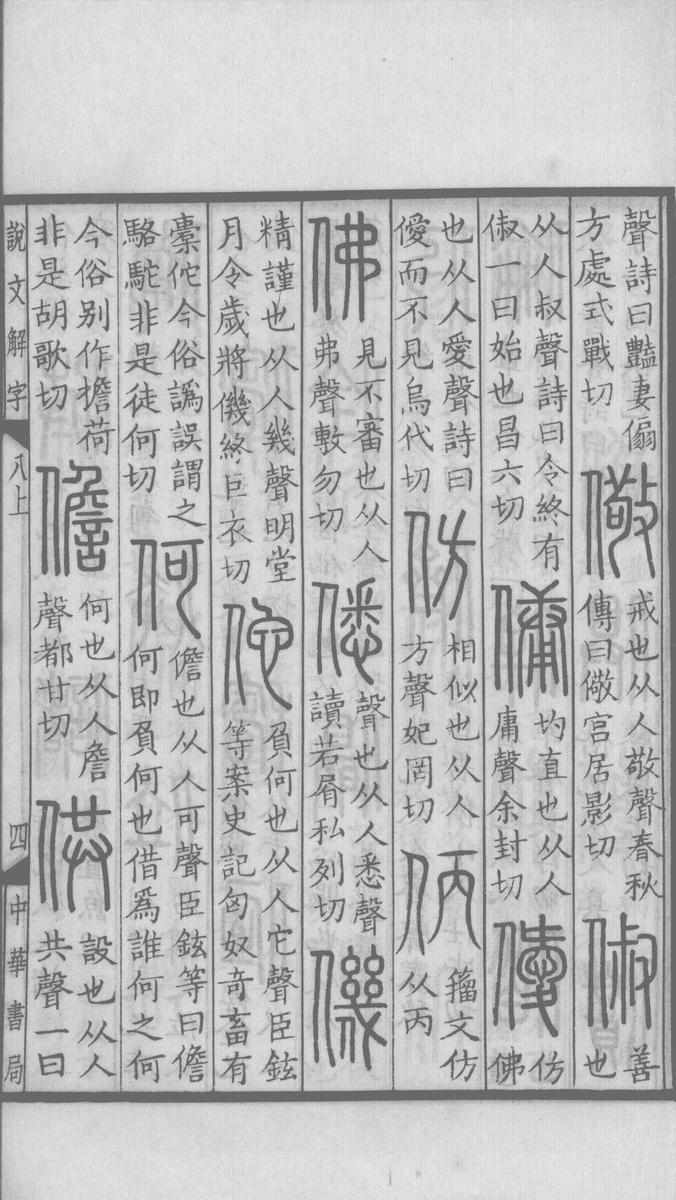 聲詩曰豔妻傓
方處式戰切
儆
戒也从人敬聲春秋
傳曰儆宮居影切
俶
善
也
从人叔聲詩曰令終有
俶一曰始也昌六切
傭
均直也从人
庸聲余封切
僾
仿
佛
也从人愛聲詩曰
僾而不見烏代切
仿
相似也从人
方聲妃罔切
㑂
籀文仿
从丙
佛
見不審也从人
弗聲敷勿切
僁
聲也从人悉聲
讀若屑私列切
僟
精謹也从人幾聲明堂
月令歲將僟終巨衣切
佗
負何也从人它聲臣鉉
等案史記匈奴奇畜有
橐佗今俗譌誤謂之
駱駝非是徒何切
何
儋也从人可聲臣鉉等曰儋
何即負何也借爲誰何之何
今俗别作擔荷
非是胡歌切
儋
何也从人詹
聲都甘切
供
設也从人
共聲一曰
說文解字
八上
四
中華書局